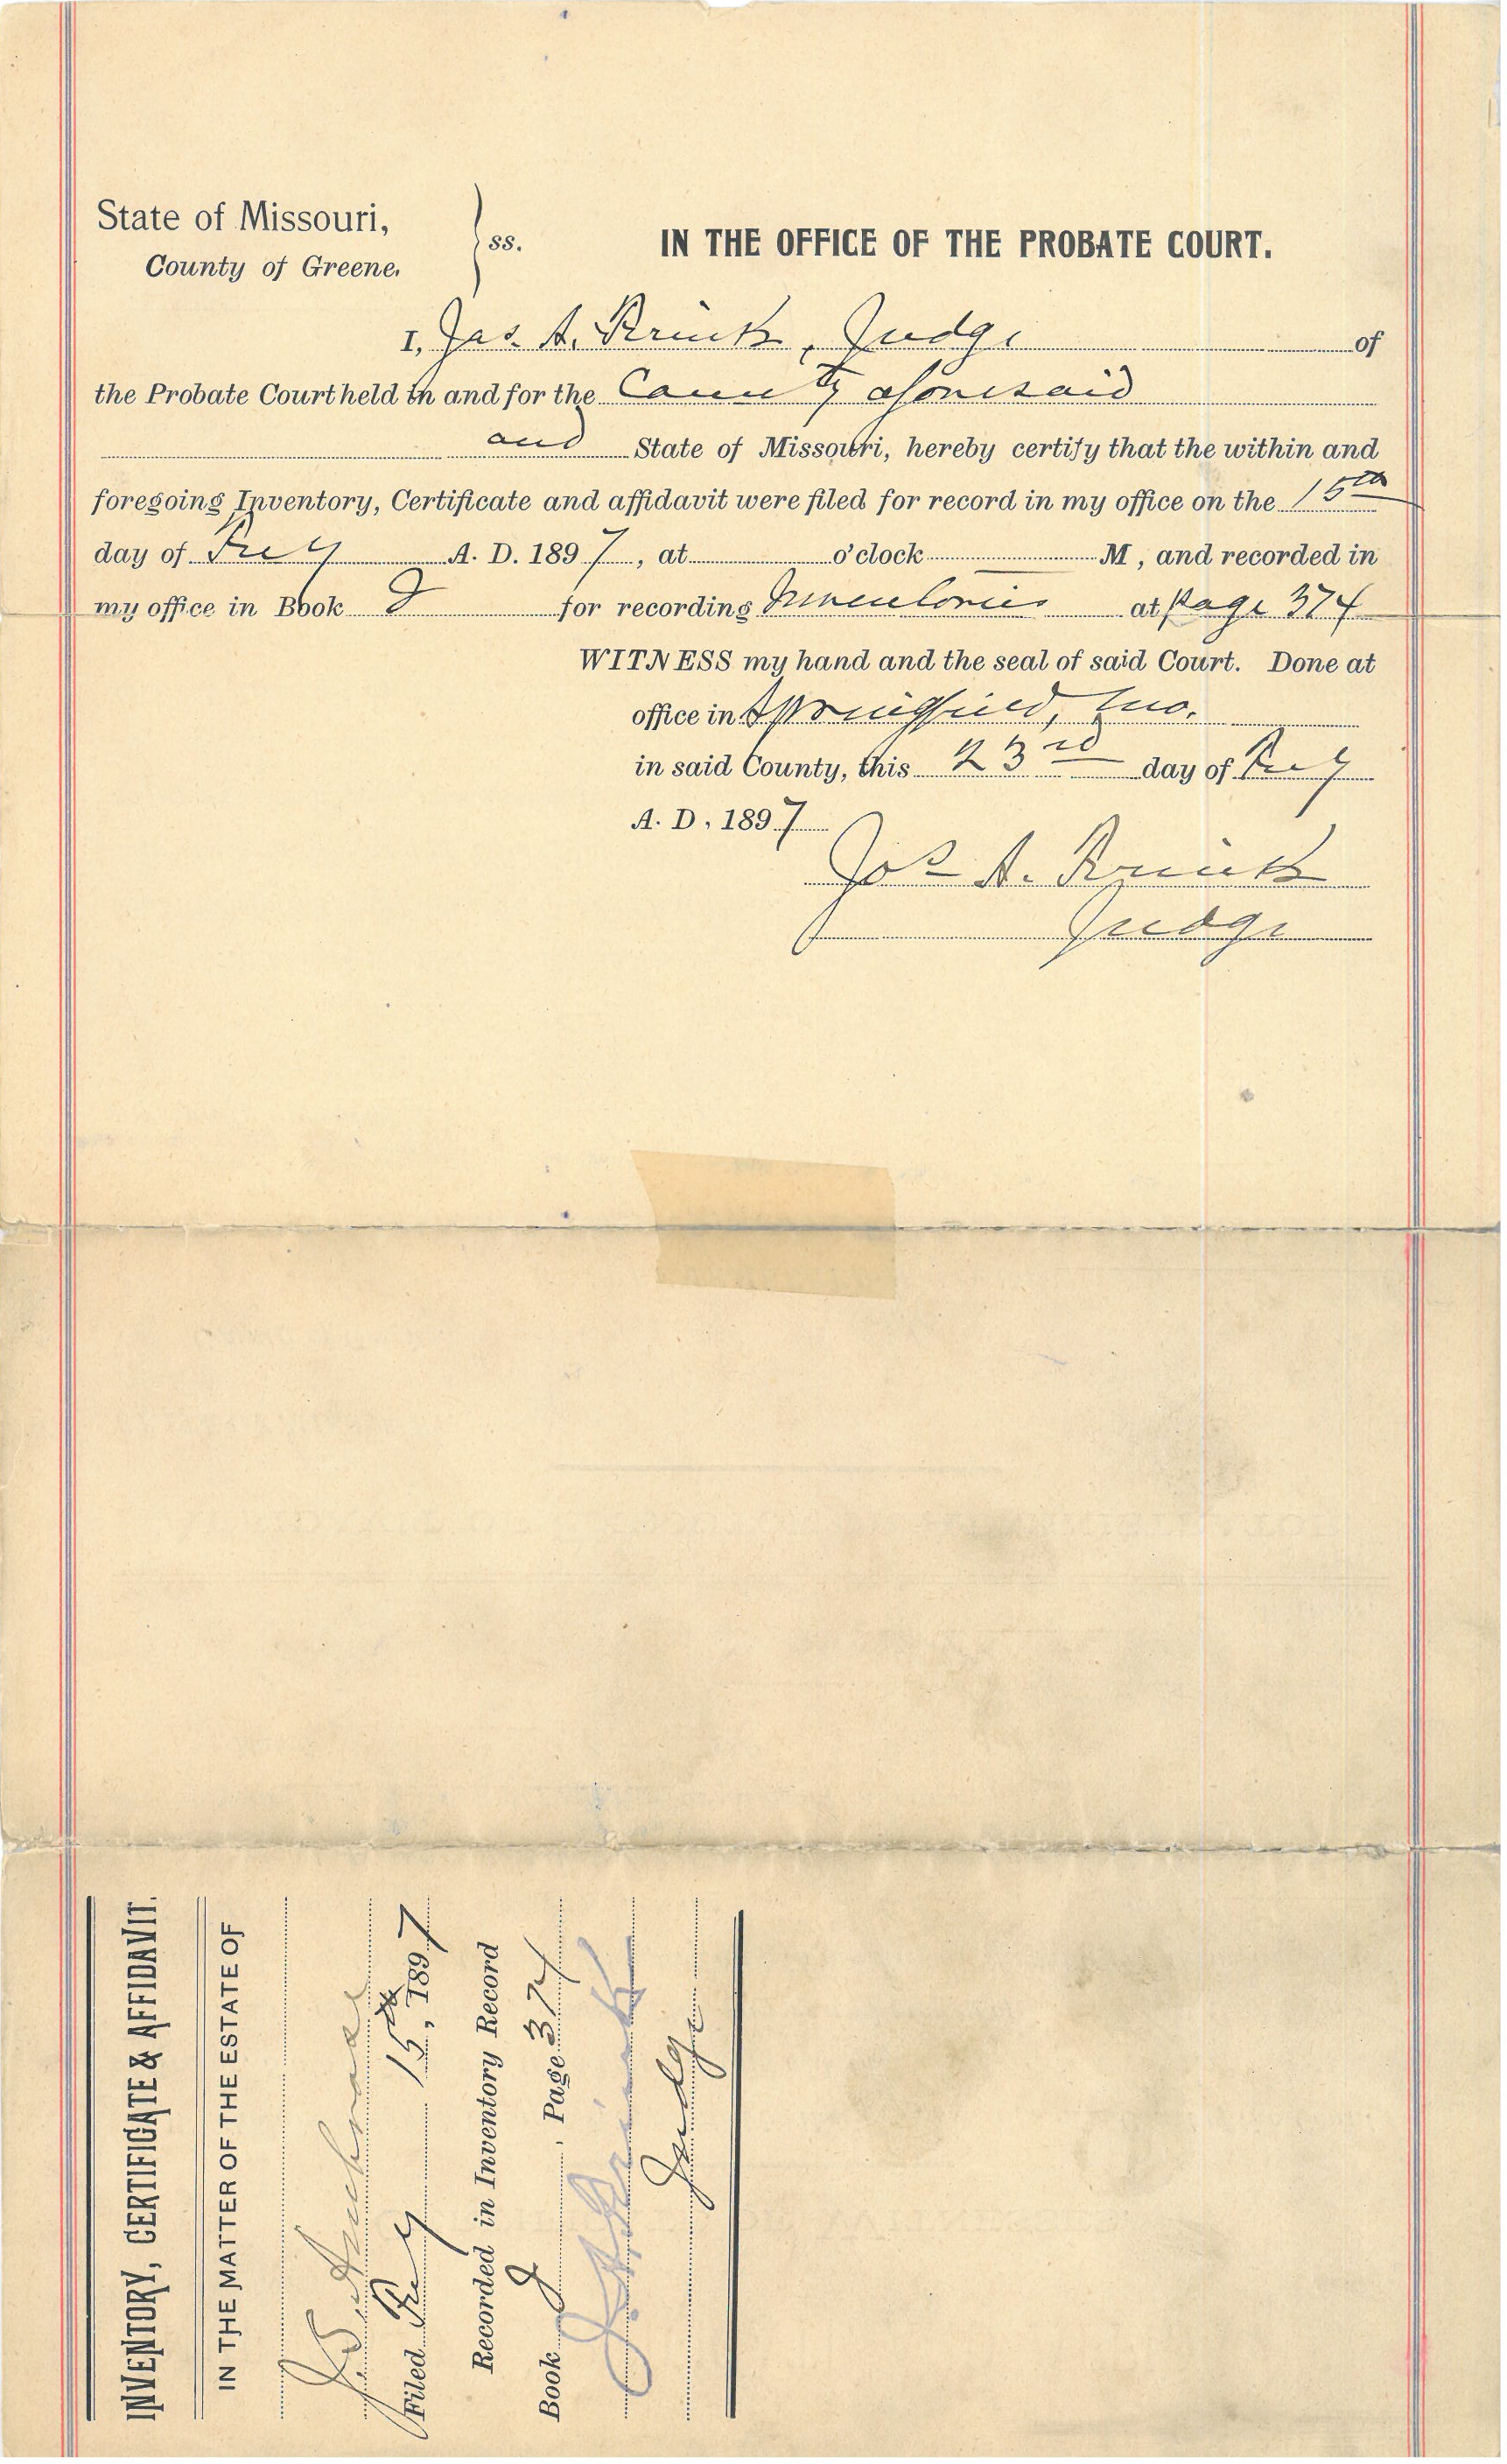 State of Missouri,
County of Greene.
ss.
IN THE OFFICE OF THE PROBATE COURT.
I, Jas. A. Prink, Judge of
the Probate Court held in and for the County aforesaid
and State of Missouri, hereby certify that the within and
foregoing Inventory, Certificate and affidavit were filed for record in my office on the 15th
day of A. D. 1897, at o'clock M, and recorded in
my office in Book for recording Inventories at page 374
WITNESS my hand and the seal of said Court. Done at
office in Springfield, Mo.
in said County, this 23rd day of
A. D. 1897
Jas A.
Judge
INVENTORY, CERTIFICATE & AFFIDAVIT.
IN THE MATTER OF THE ESTATE OF
J. S.
Filed 15th, 1897
Recorded in Inventory Record
Book Page 374
J. A.
Judge